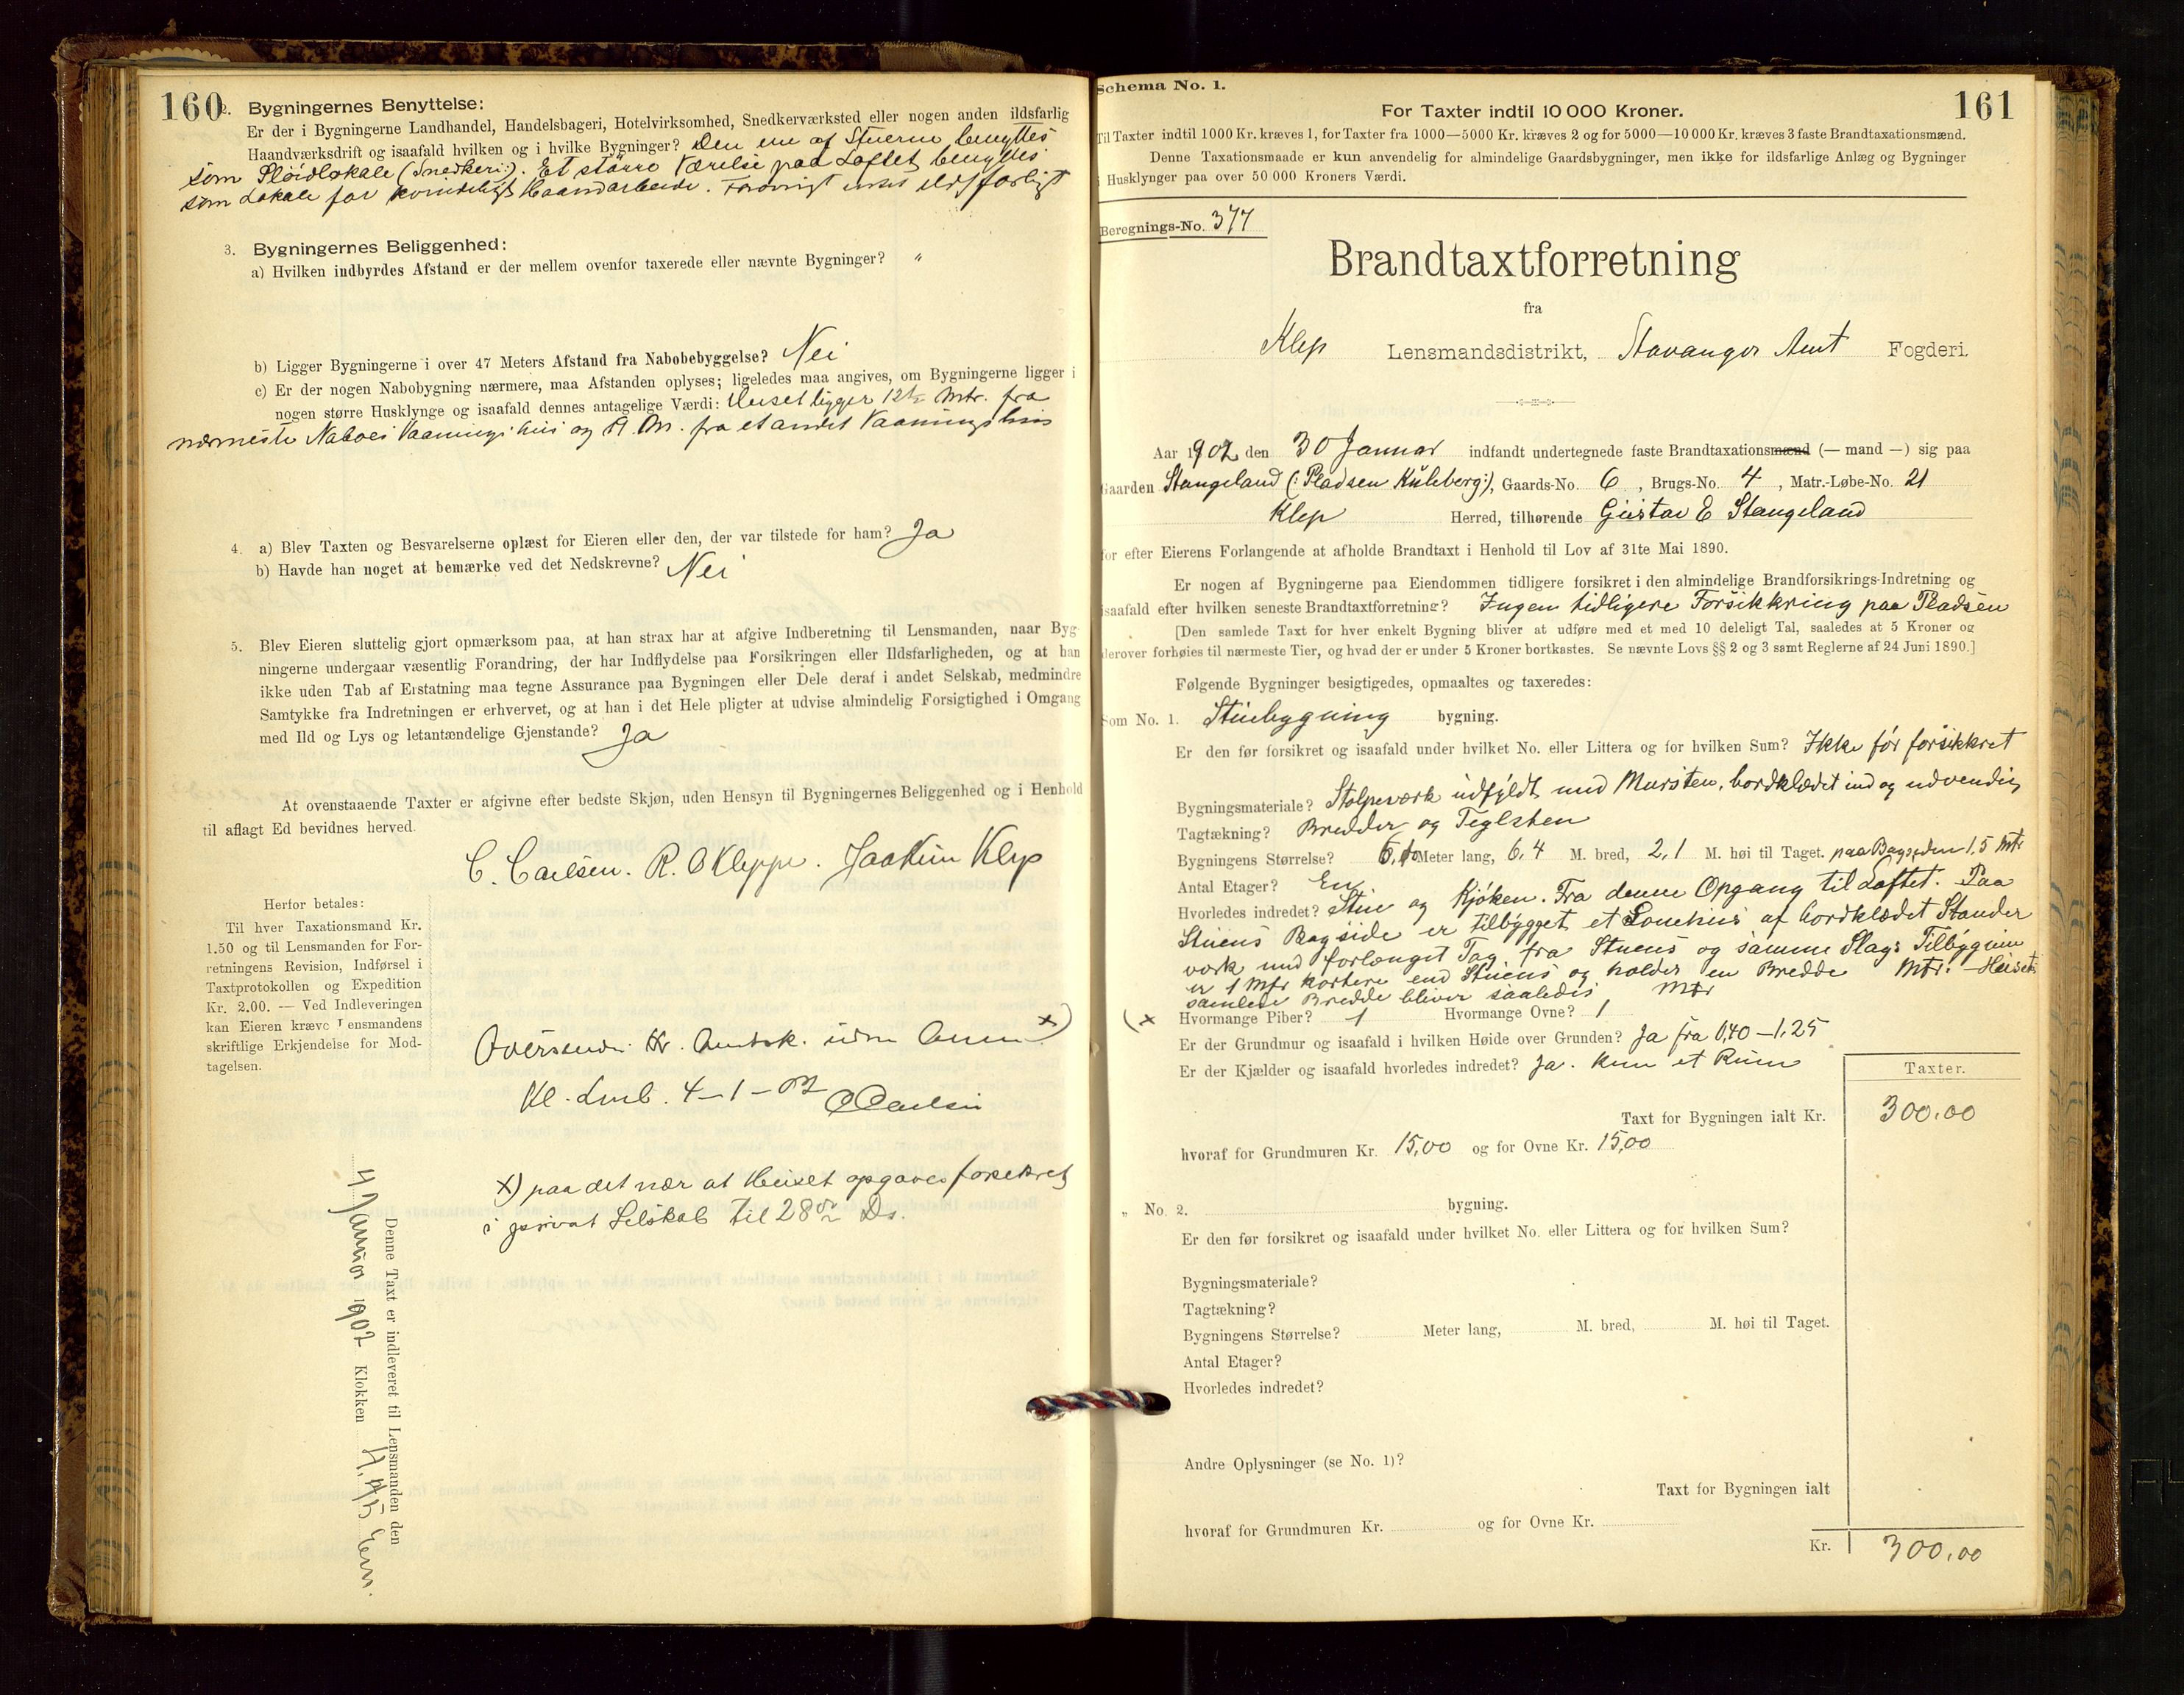 160
2. Bygningernes Benyttelse:
Er der i Bygningerne Landhandel, Handelsbageri, Hotelvirksomhed, Snedkerværksted eller nogen anden ildsfarlig
Haandværksdrift og isaafald hvilken og i hvilke Bygninger? Den ene af Stuerne benyttes
som Sløidlokale (Snedkeri:). Et større Værelse paa Loftet benyttes
som Lokale for kvindeligt Haandarbeide. Forøvrigt intet ildsfarligt
3. Bygningernes Beliggenhed:
a) Hvilken indbyrdes Afstand er der mellem ovenfor taxerede eller nævnte Bygninger? "
b) Ligger Bygningerne i over 47 Meters Afstand fra Nabobebyggelse? Nei
c) Er der nogen Nabobygning nærmere, maa Afstanden oplyses; ligeledes maa angives, om Bygningerne ligger i
nogen større Husklynge og isaafald dennes antagelige Værdi: Huset ligger 12½ Mtr. fra
nærmeste Naboes Vaaningshus og M. fra et andet Vaaningshus
4. a) Blev Taxten og Besvarelserne oplæst for Eieren eller den, der var tilstede for ham? Ja
b) Havde han noget at bemærke ved det Nedskrevne? Nei
5. Blev Eieren sluttelig gjort opmærksom paa, at han strax har at afgive Indberetning til Lensmanden, naar Byg-
ningerne undergaar væsentlig Forandring, der har Indflydelse paa Forsikringen eller Ildsfarligheden, og at han
ikke uden Tab af Erstatning maa tegne Assurance paa Bygningen eller Dele deraf i andet Selskab, medmindre
Samtykke fra Indretningen er erhvervet, og at han i det Hele pligter at udvise almindelig Forsigtighed i Omgang
med Ild og Lys og letantændelige Gjenstande? Ja
At ovenstaaende Taxter er afgivne efter bedste Skjøn, uden Hensyn til Bygningernes Beliggenhed og i Henhold
til aflagt Ed bevidnes herved.
C. Carlsen. R. O Kleppe. Joakim Klep
Herfor betales:
Til hver Taxationsmand Kr.
1.50 og til Lensmanden for For-
retningens Revision, Indførsel i
Taxtprotokollen og Expedition
Kr. 2.00. — Ved Indleveringen
kan Eieren kræve Lensmandens
skriftlige Erkjendelse for Mod-
tagelsen.
Oversendes Hr. Amtsk. uden Anm x)
Kl. Lmb. 4-1-02 CCarlsen
x) paa det nær at Huset opgaves forsikret
i privat Selskab til Ds.
Denne Taxt er indleveret til Lensmanden den
4 Januar 1902 Klokken 4,45 Em.
161
Schema No. 1.
For Taxter indtil 10 000 Kroner.
Til Taxter indtil 1000 Kr. kræves 1, for Taxter fra 1000—5000 Kr. kræves 2 og for 5000—10 000 Kr. kræves 3 faste Brandtaxationsmænd.
Denne Taxationsmaade er kun anvendelig for almindelige Gaardsbygninger, men ikke for ildsfarlige Anlæg og Bygninger
i Husklynger paa over 50 000 Kroners Værdi.
Beregnings-No. 377
Brandtaxtforretning
fra
Klep Lensmandsdistrikt, Stavanger Amt Fogderi.
Aar 1902 den 30 Januar indfandt undertegnede faste Brandtaxationsmænd (— mand —) sig paa
Gaarden Stangeland (: Pladsen Kuleberg:), Gaards-No. 6, Brugs-No. 4, Matr.-Løbe-No. 21
Klep Herred, tilhørende Gustav E Stangeland
for efter Eierens Forlangende at afholde Brandtaxt i Henhold til Lov af 31te Mai 1890.
Er nogen af Bygningerne paa Eiendommen tidligere forsikret i den almindelige Brandforsikrings-Indretning og
isaafald efter hvilken seneste Brandtaxtforretning? Ingen tidligere Forsikkring paa Pladsen
[Den samlede Taxt for hver enkelt Bygning bliver at udføre med et med 10 deleligt Tal, saaledes at 5 Kroner og
derover forhøies til nærmeste Tier, og hvad der er under 5 Kroner bortkastes. Se nævnte Lovs §§ 2 og 3 samt Reglerne af 24 Juni 1890.]
Følgende Bygninger besigtigedes, opmaaltes og taxeredes:
Som No. 1. Stuebygning bygning.
Er den før forsikret og isaafald under hvilket No. eller Littera og for hvilken Sum? Ikke før forsikkret
Bygningsmateriale? Stolpeværk udfyldt med Mursten, bordklædet ind og udvendig
Tagtækning? Bredder og Teglsten
Bygningens Størrelse? Meter lang, 6,4 M. bred, 2,1 M. høi til Taget. paa Bagsiden 1,5 Mtr
Antal Etager? En
Hvorledes indredet? Stue og Kjøken. Fra denne Opgang til Loftet. Paa
Stuens Bagside er tilbygget et af bordklædet Stander
værk med forlænget Tag fra Stuens og samme Slags Tilbygnin
er 1 Mtr kortere end Stuens og holder en Bredde Mtr. – Huset
samlede Bredde bliver saaledes Mtr
(x Hvormange Piber? 1 Hvormange Ovne? 1
Er der Grundmur og isaafald i hvilken Høide over Grunden? Ja fra 0,40 – 1,25
Er der Kjælder og isaafald hvorledes indredet? Ja. kun et Rum
Taxter.
Taxt for Bygningen ialt Kr. 300,00
hvoraf for Grundmuren Kr. 15,00 og for Ovne Kr. 15,00
" No. 2. bygning.
Er den før forsikret og isaafald under hvilket No. eller Littera og for hvilken Sum?
Bygningsmateriale?
Tagtækning?
Bygningens Størrelse? Meter lang, M. bred, M. høi til Taget.
Antal Etager?
Hvorledes indredet?
Andre Oplysninger (se No. 1)?
Taxt for Bygningen ialt
hvoraf for Grundmuren Kr. og for Ovne Kr.
Kr. 300,00